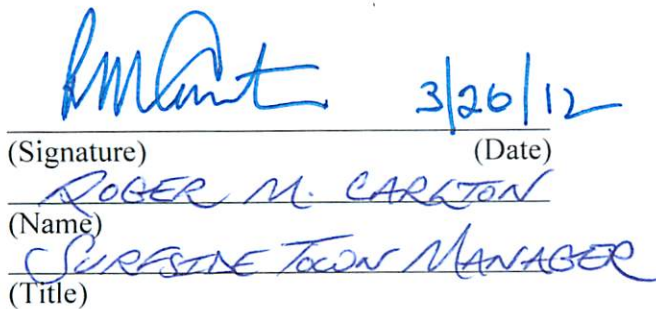 RM Carlton 3/26/12
(Signature) (Date)
ROGER M. CARLTON
(Name)
SURFSIDE TOWN MANAGER
(Title)